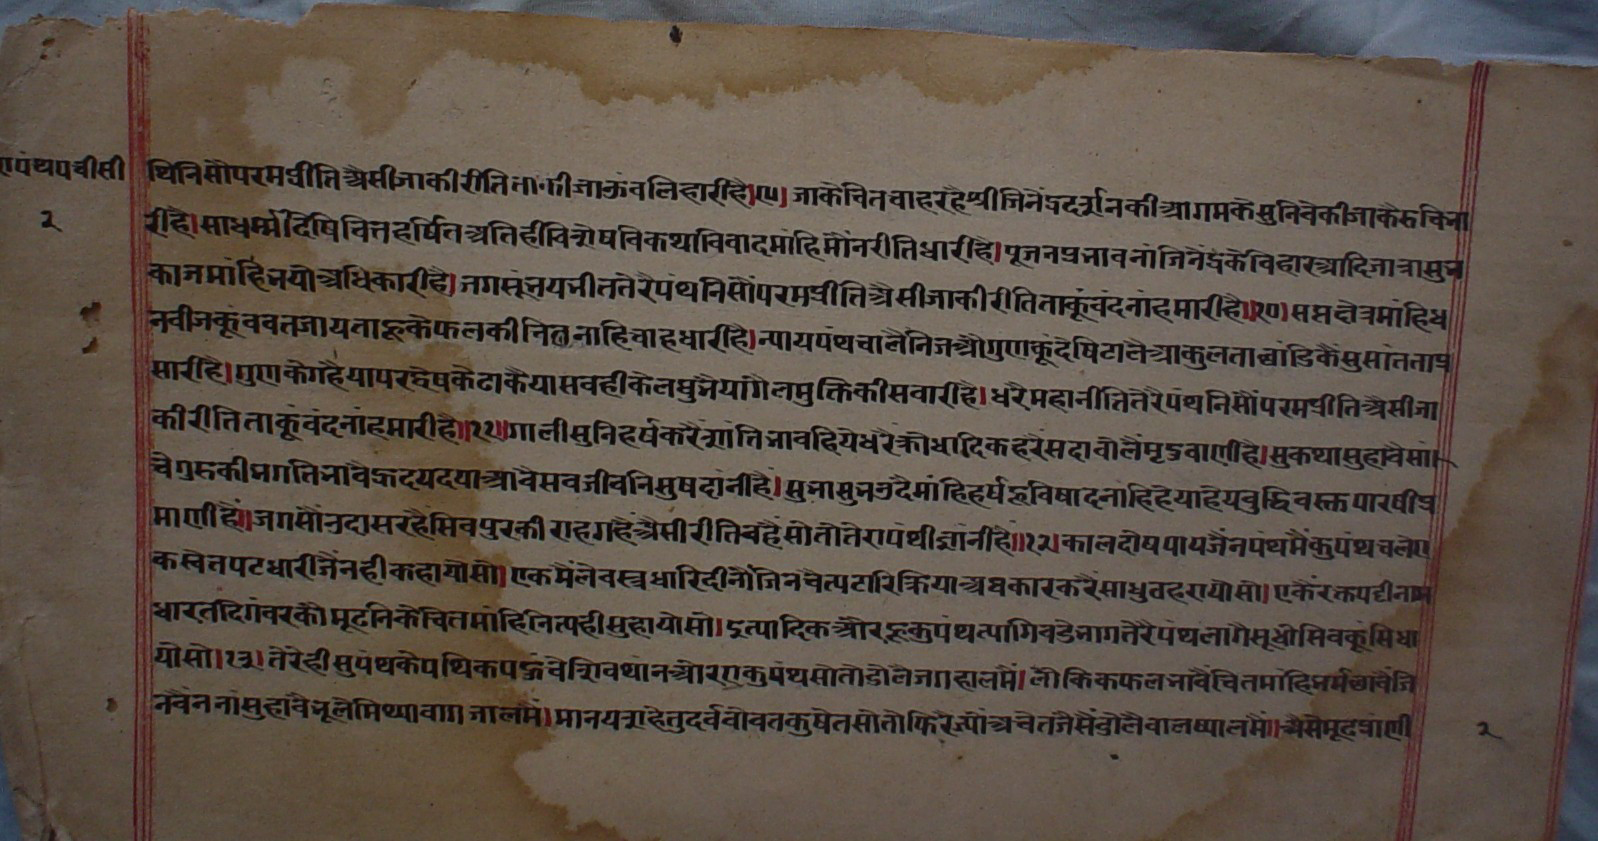 पंथपचीसी थिनिसौपरमप्रीतिअैसीजाकीरीतिताकीजाऊंवलिहारीहै।९। जाकैचितचाहरहैश्रीजिनेंद्रदर्शनकीआगमकेसुनिवेकीजाकैरुचिना
२ रीहै। साधर्म्मीदेषिचित्तहर्षितअतिहीविशेषविकथाविवादमांहिमौंनरीतिधारीहै। पूजनप्रभावनांजिनेंद्रकेविहारआदिजात्रासुभ
काजमांहिभयोअधिकारीहै। जगसूंभयभीततेरैपंथनिसौंपरमप्रीतिअैसीजाकीरीतिताकूंवंदनांहमारीहै।१०। सप्तक्षेत्रमांहिध
नवीजकूंववतजायताहूकेफलकीचितनाहिचाहधारीहै। न्यायपंथचालैनिजऔगुणकूंदेषिटालैआकुलताछांडिकैंसुसांतताप्र
सारीहै। गुणकेगहैयापरद्वेषकेढाकैयासवहीकेलघुभैयागैलमुक्तिकीसवारीहै। धरैमहानीतितेरैपंथनिसौंपरमप्रीतिअैसीजा
कीरीतिताकूंवंदनांहमारीहै।११। गालीसुनिहर्षकरैशांतिभावहियेधरैक्रोधादिकहरैसदावोलैमृदुवाणीहै। सुकथासुहावैसां
चेगुरुकीभगतिभावैह्रदयदयाआवैसवजीवनिसुषदांनीहै। सुभासुभउदैमांहिहर्षहूविषादनाहिहेयाहेयवुद्धिवस्तपारषीप्र
माणीहै। जगसौंउदासरहैसिवपुरकीराहगहैअैसीरीतिवहैसोतोतेरापंथीज्ञांनीहै।१२। कालदोषपायजैनपंथमैंकुपंथचलेए
कस्वेतपटधारीजैंनहीकहायोसो। एकमैंलेवस्त्रधारिदीनौंजिनचैत्पटारिक्रियाअधकारकरैंसाधुवहरायोसो। एकैंरक्तपट्टीनाम
धारतदिगंवरकौमूढनिकेचितमांहिनित्पहीसुहायोसो। इत्पादिकऔरहूकुपंथत्पागिवडेभागतेरैपंथलागैसूधोसिवकूंसिधा
योसो।१३। तेरेहीसुपंथकेपथिकपहुंचेशिवथानऔरएकुपंथसोतोडोलैजगहालमैं। लौकिकफलभावैंचितमांहिभर्मछावैजि
नवैंननांसुहावैभूलेमिथ्यावागजालमैं। मानयशहेतुदर्ववोवतकुषेतसोतोफिरैज्यौंअचेतजैसैंडोलैवालष्यालमैं। अैसेमूढप्रांणी २